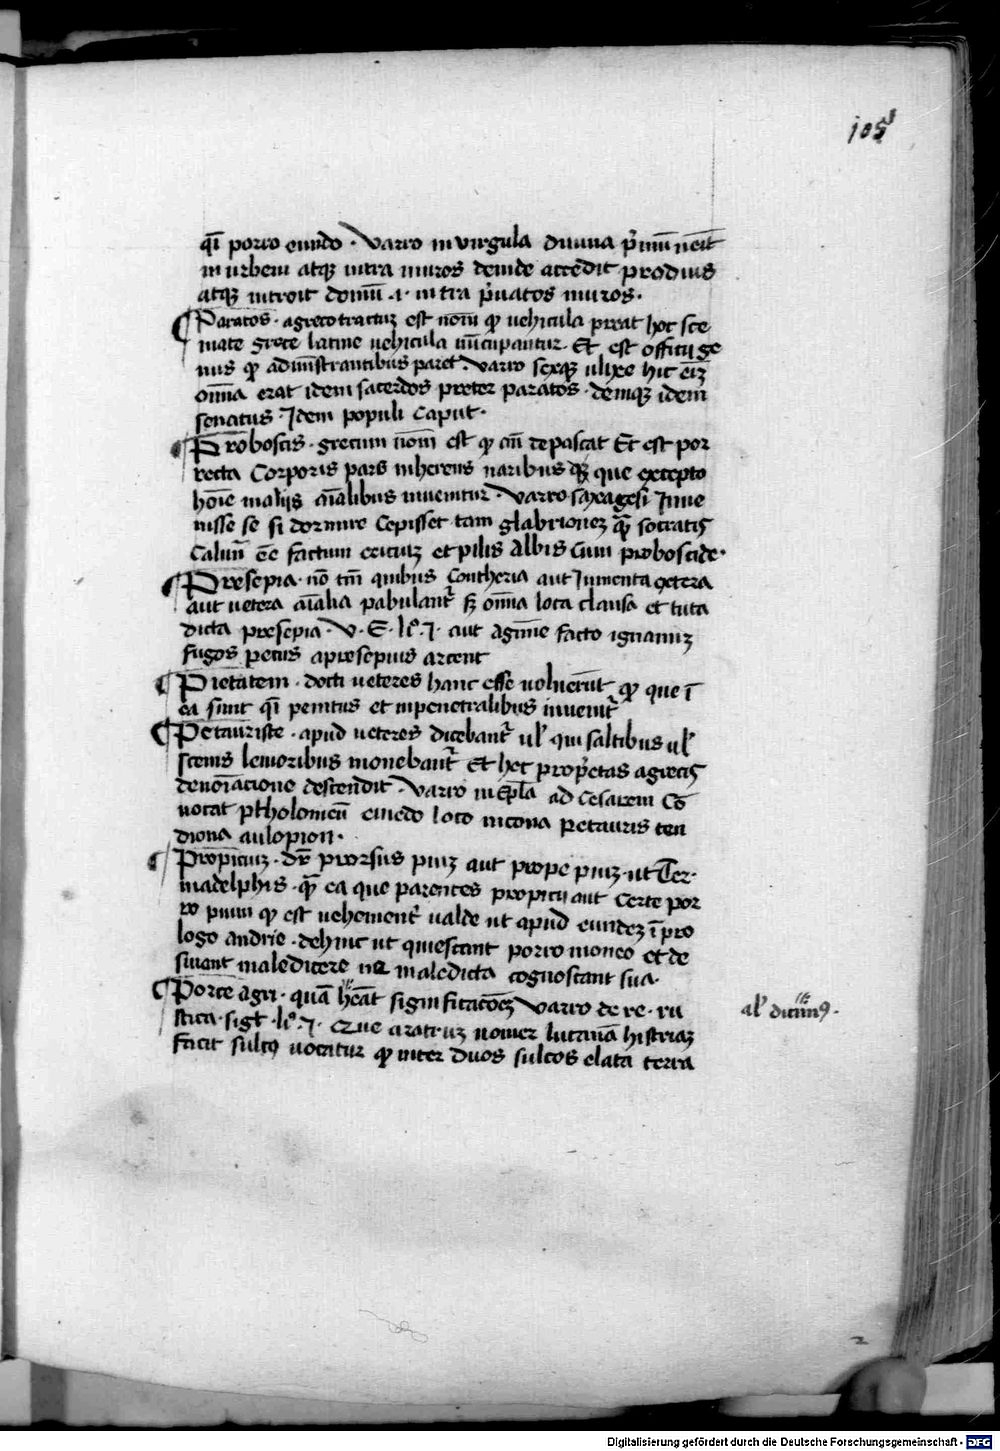 105
qī porro eundo · Varro in virgula diuina p̄mū uēit
in urbem atqꝫ intra muros deinde accedit prodius
atqꝫ introit domū .i. intra p̄uatos muros·
¶ Paratos · a greco tractuꝫ est nom̄ qꝓ uehicula preat hoc sce
mate grece latine uehicula nūcupantur · Et est officij ge
nus qꝓ adm̄istrantibus paret · Varro sexqꝫ ulixe hic eiꝫ
om̄ia erat idem sacerdos preter paratos · deniqꝫ idem
senatus · Idem populi caput·
¶ Proboscis · grecum nom̄ est qꝓ cū depascat Et est por
recta Corporis pars inherens naribus qꝫ que excepto
hoīe maliis aīalibus inuenitur · Varro sexagesi Inue
nisse se si dormire Cepisset tam glabrionez quā socratis
Caluū eē factum ericiuꝫ et pilis Albis Cum proboscide·
¶ Presepia · nō tm̄ quibus Contheria aut Iumenta cetera
aut uetera aīalia pabulant̄ sꝫ om̄ia loca clausa et tuta
dicta presepia · V · E · li⁰ · I · aut agmīe facto ignauuꝫ
fugos pecus a presepius arcent
¶ Pietatem · docti ueteres hanc esse uoluerūt qꝓ que ī
ea sunt qī penitus et inpenetralibus inuenit̄
¶ Petauriste · apud ueteres dicebant̄ ul̄ qui saltibus ul̄
scenis leuioribus mouebant̄ Et hec prop̄etas a grecis
denoīatione descendit · Varro in Epl̄a ad Cesarem Cō
uocat ptholomeū
diona aulopion·
¶ Propiciuꝫ · dr̄ prorsus piuꝫ aut prope piuꝫ · ut Ter·
in adelphis · quā ea que parentes propicij aut Certe por
ro pium qꝓ est uehement̄ ualde ut apud eundeꝫ ī pro
logo andrie · dehinc ut quiescant porro moneo et de
sinant maledicere ne maledicta cognoscant sua·
¶ Porce agri · quā hēāt significatōeꝫ Varro de re · ru
stica · sigt̄ · li⁰ · I · Que aratruꝫ uomer lucanā histriaꝫ
facit sulcꝰ uocatur qꝓ inter Duos sulcos elata terra
al̄ dicimꝰ ·
2
Digitalisierung gefördert durch die Deutsche Forschungsgemeinschaft - DFG